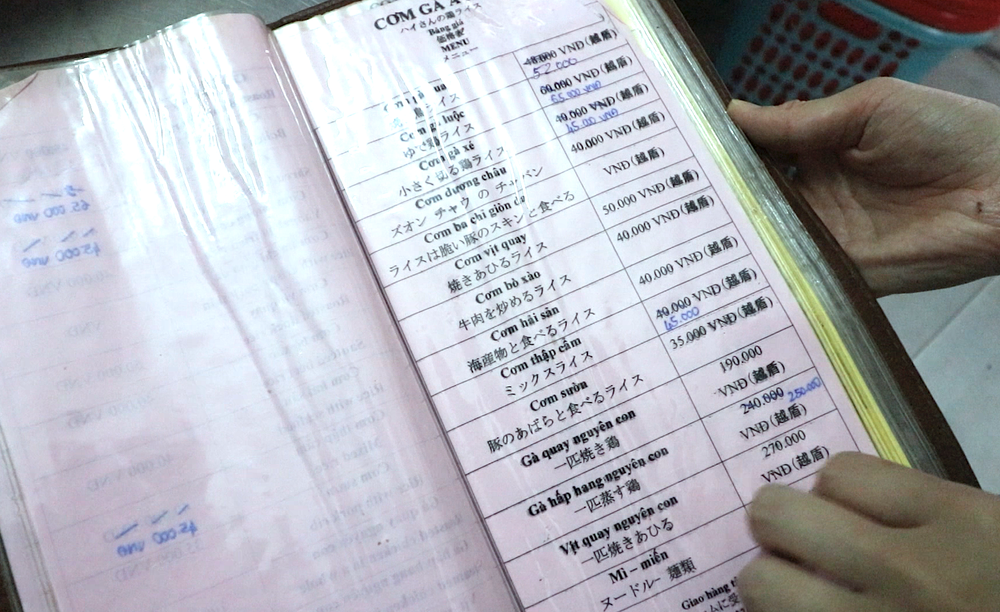 CƠM GÀ A
ハイさんの鶏ライス
Bảng giá
価格表
MENU
メニュー
48.000 VNĐ(越盾)
52.000
ライス
60.000 VNĐ(越盾)
65.000 VNĐ
Cơm gà luộc
ゆで鶏ライス
40.000 VNĐ(越盾)
45.000 VNĐ
Cơm gà xé
小さく切る鶏ライス
40.000 VNĐ(越盾)
Cơm dương châu
ズオン チャウ の チャバン
VNĐ(越盾)
Cơm ba chỉ giòn da
ライスは脆い豚のスキンと食べる
50.000 VNĐ(越盾)
Cơm vịt quay
焼きあひるライス
40.000 VNĐ(越盾)
Cơm bò xào
牛肉を炒めるライス
40.000 VNĐ(越盾)
Cơm hải sản
海産物と食べるライス
40.000 VNĐ(越盾)
45.000
Cơm thập cẩm
ミックスライス
35.000 VNĐ(越盾)
Cơm sườn
豚のあばらと食べるライス
190.000
VNĐ(越盾)
Gà quay nguyên con
一匹焼き鶏
240.000 250.000
VNĐ(越盾)
Gà hấp hang nguyên con
一匹蒸す鶏
270.000
VNĐ(越盾)
Vịt quay nguyên con
一匹焼きあひる
Mì – miến
ヌードルー 麺類
Giao hàng